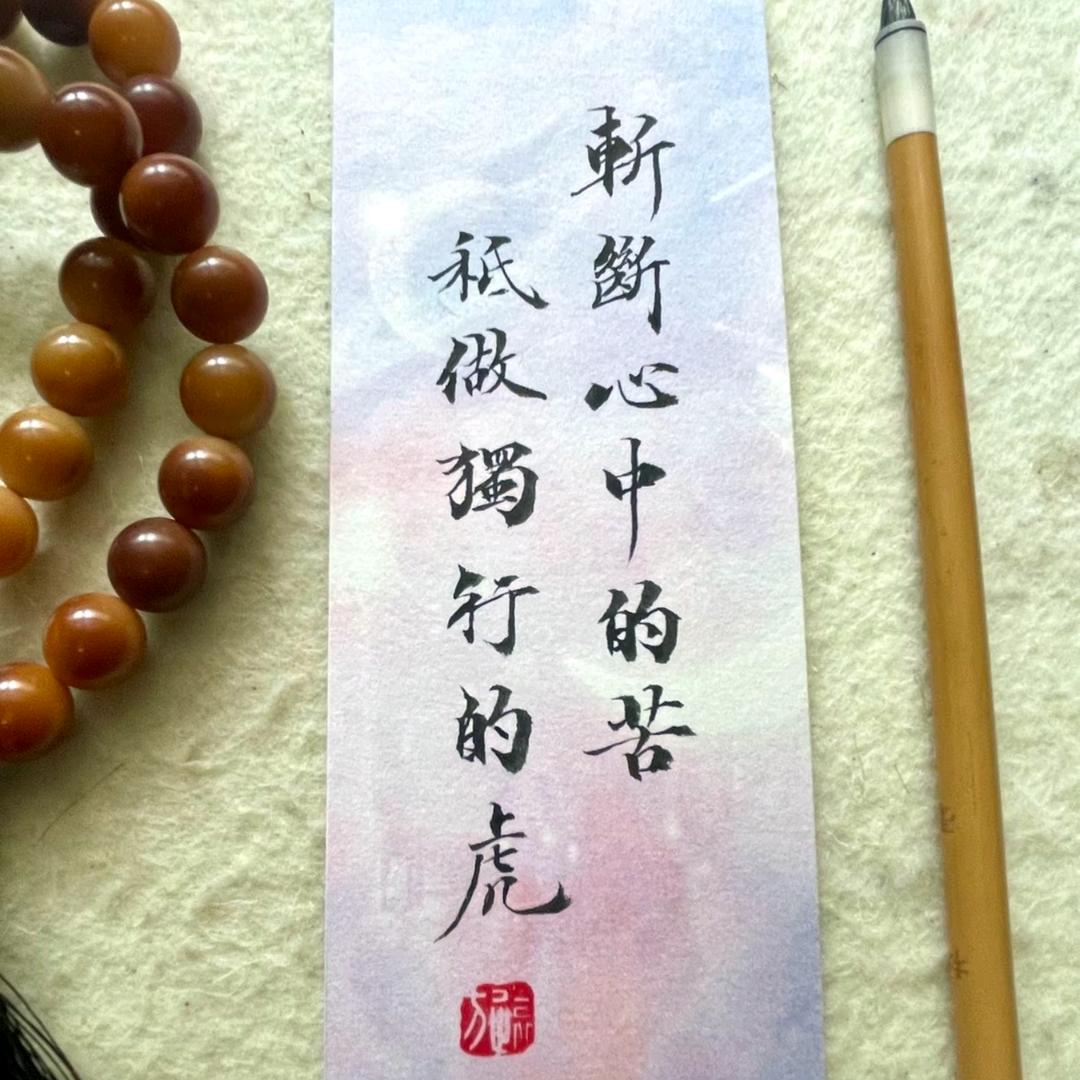 斬斷心中的苦
秖做獨行的虎